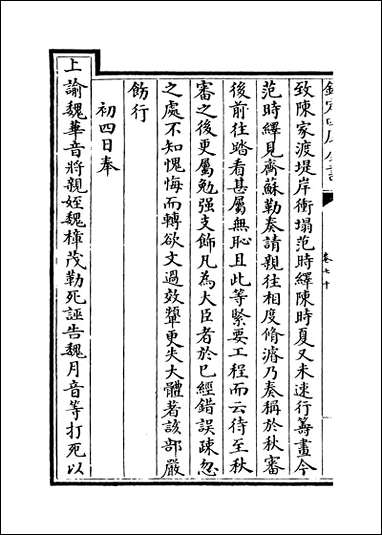 致陳家渡堤岸衝塌范時繹陳時夏又未速行籌畫今
范時繹見齊蘇勒奏請親往相度脩濬乃奏稱於秋審
後前往踏看甚屬無恥且此等緊要工程而云待至秋
審之後更屬勉强支飾凡為大臣者於已經錯誤疎忽
之處不知愧悔而轉欲文過效顰更失大體著該部嚴
飭行
初四日奉
上諭魏華音將親姪魏樟茂勒死誣告魏月音等打死以